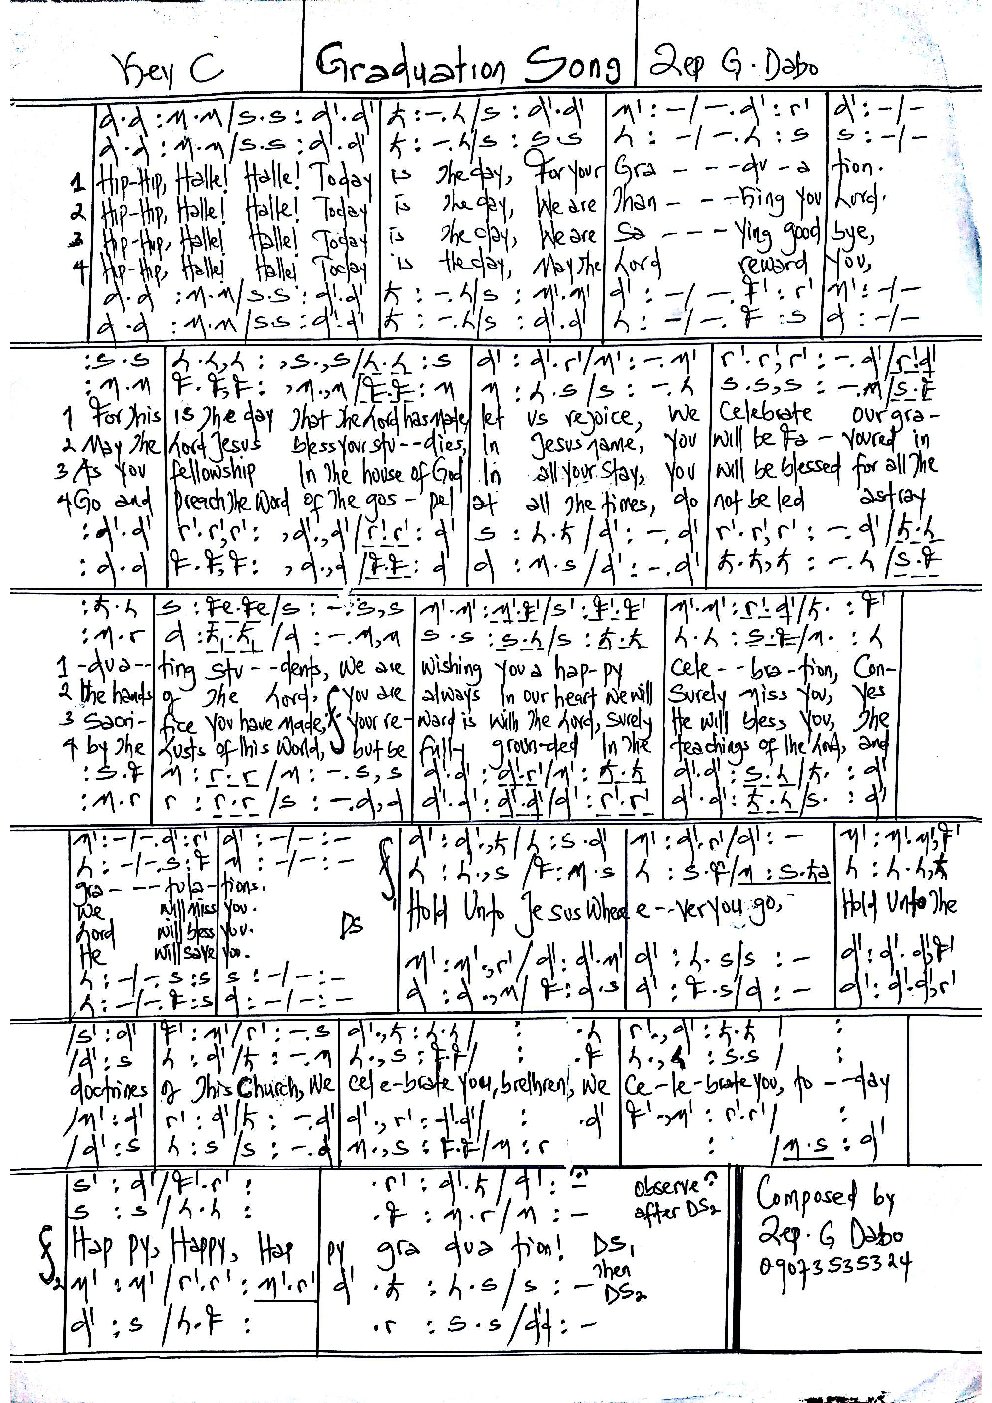 Key C Graduation Song Zep G. Dabo
d.d : m.m / s.s : d'.d' t : -.l / s : d'.d' m' : - / -.d' : r' d' : - / -
d.d : m.m / s.s : d'.d' t : -.l / s : s.s l : - / -.l : s s : - / -
1 Hip-Hip, Halle! Halle! Today is The day, For your Gra - - - du - a tion.
2 Hip-Hip, Halle! Halle! Today is The day, We are Than - - - king you Lord.
3 Hip-Hip, Halle! Halle! Today is The day, We are Sa - - - ying good bye,
4 Hip-Hip, Halle! Halle! Today is the day, May The Lord reward you,
d.d : m.m / s.s : d'.d' t : -.l / s : m'.m' d' : - / -.f' : r' m' : - / -
d.d : m.m / s.s : d'.d' t : -.l / s : d'.d' l : - / -.f : s d : - / -
: s.s l.l,l : ,s.,s / l.l : s d' : d'.r' / m' : -.m' r'.r',r' : -.d' / r'.d'
: m.m f.f,f : ,m.,m / f.f : m m : l.s / s : -.l s.s,s : -.m / s.f
1 For This is The day That The Lord has made, let us rejoice, We Celebrate our gra-
2 May The Lord Jesus bless your stu - - dies, In Jesus name, you will be fa - voured in
3 As You fellowship In The house of God In all your Stay, you will be blessed for all The
4 Go and Preach The Word of The gos - pel at all The times, do not be led astray
: d'.d' r'.r',r' : ,d'.,d' / r'.r' : d' s : l.t / d' : -.d' r'.r',r' : -.d' / t.l
: d.d f.f,f : ,d.,d / f.f : d d : m.s / d' : -.d' t.t,t : -.l / s.f
: t.l s : fe.fe / s : -.s,s m'.m' : m'.f' / s' : f'.f' m'.m' : r'.d' / t. : f'
: m.r d : t.t / d : -.m,m s.s : s.l / s : t.t l.l : s.f / m. : l
1 -dua - - ting stu - - dents, We are wishing you a hap-py Cele - - bra - tion, Con-
2 the hands of The Lord. you are always In our heart We will Surely miss you, yes
3 Sacri - fice you have made, your re- ward is with The Lord, surely He will bless you, The
4 by The Lusts of this World, but be fully groun-ded In The teachings of the Lord, and
: s.f m : r.r / m : -.s,s d'.d' : d'.r' / m' : t.t d'.d' : s.l / t. : d'
: m.r r : r.r / s : -.d,d d'.d' : d'.d' / d' : r'.r' d'.d' : t.l / s. : d'
m' : - / -.d' : r' d' : - / - : - d' : d'.,t / l : s.d' m' : d'.r' / d' : - m' : m'.m',f'
l : - / -.s : f m : - / - : - l : l.,s / f : m.s l : s.f / m : s.ta l : l.l,t
gra - - - tula - tions.
We will miss you. Hold Unto Jesus Where e - - ver you go, Hold Unto The
Lord will bless you. DS
He will save you.
l : - / -.s : s s : - / - : - m' : m'.,r' / d' : d'.m' d' : l.s / s : - d' : d'.d',f'
l : - / -.f : s d : - / - : - d' : d'.,m / f : d.s d' : f.s / d : - d' : d'.d',r'
/ s' : d' f' : m' / r' : -.s d'.,t : l.l / : .l r'.,d' : t.t / :
/ d' : s l : d' / t : -.m l.,s : f.f / : .f l., : s.s / :
doctrines of This Church, We cel e-brate you, brethren, We Ce-le-brate you, to - - day
/ m' : d' r' : d' / t : -.d' d'.,r' : d'.d' / : .d' f'.,m' : r'.r' / :
/ d' : s l : s / s : -.d m.,s : f.f / m : r : / m.s : d'
s' : d' / f'.r' : .r' : d'.t / d' : - observe after DS2
s : s / l.l : .f : m.r / m : -
2 Hap py, Happy, Hap py gra dua tion! DS1 Then DS2
m' : m' / r'.r' : m'.r' d' .t : l.s / s : -
d' : s / l.f : .r : s.s / d : -
Composed by
Zep. G Dabo
09073535324